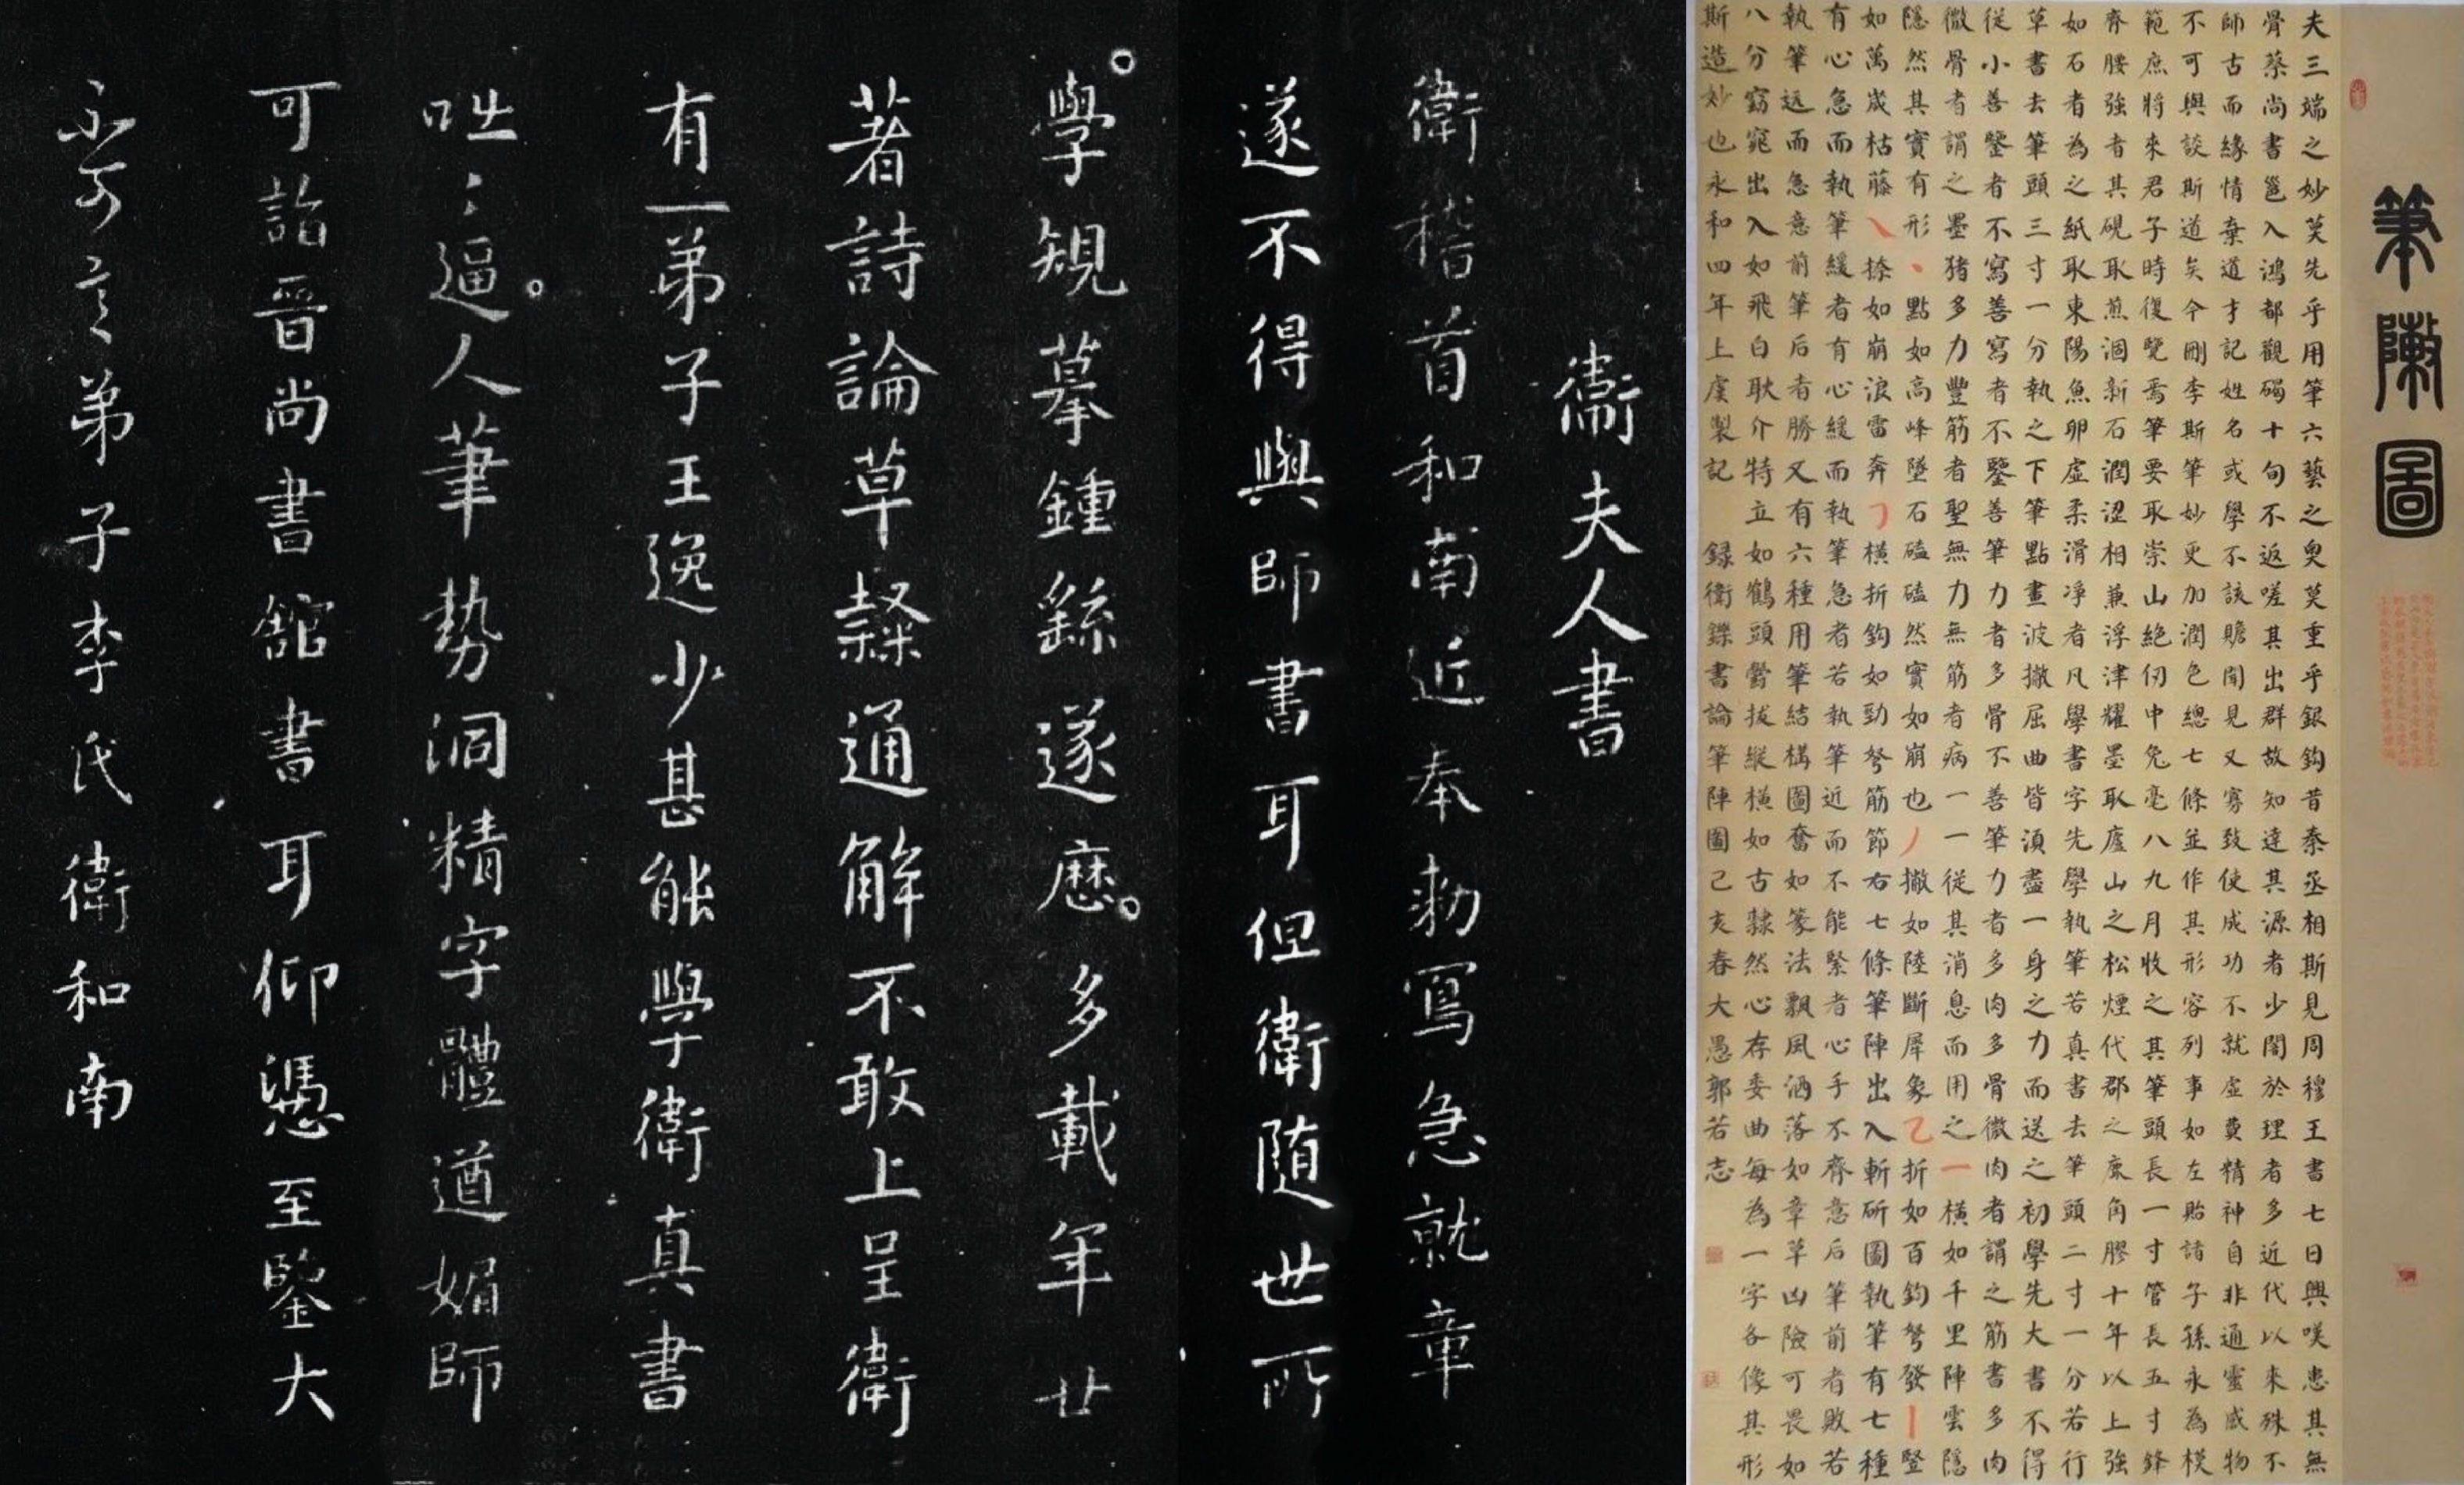 衛夫人書
衛稽首和南近奉勅寫急就章
遂不得與師書耳但衛随世所
學規摹鍾繇遂歷多載年廿
著詩論草隸通解不敢上呈衛
有一弟子王逸少甚能學衛真書
咄咄逼人筆勢洞精字體遒媚師
可詣晉尚書舘書耳仰憑至鑒大
不可言弟子李氏衛和南
筆陳圖
夫三端之妙莫先乎用筆六藝之奧莫重乎銀鈎昔秦丞相斯見周穆王書七日興嘆患其無
骨蔡尚書邕入鴻都觀碣十旬不返嗟其出群故知達其源者少闇於理者多近代以來殊不
師古而緣情棄道才記姓名或學不該贍聞見又寡致使成功不就虛費精神自非通靈感物
不可與談斯道矣今刪李斯筆妙更加潤色總七條並作其形容列事如左貽諸子孫永為模
範庶將來君子時復覽焉筆要取崇山絕仞中兔毫八九月收之其筆頭長一寸管長五寸鋒
齊腰強者其硯取煎涸新石潤澀相兼浮津耀墨取廬山之松煙代郡之鹿角膠十年以上強
如石者為之紙取東陽魚卵虛柔滑淨者凡學書字先學執筆若真書去筆頭二寸一分若行
草書去筆頭三寸一分執之下筆點畫波撇屈曲皆須盡一身之力而送之初學先大書不得
從小善鑒者不寫善寫者不鑒善筆力者多骨不善筆力者多肉多骨微肉者謂之筋書多肉
微骨者謂之墨猪多力豐筋者聖無力無筋者病一一從其消息而用之一橫如千里陣雲隱
隱然其實有形丶點如高峰墜石磕磕然實如崩也丿撇如陸斷犀象乙折如百鈞弩發丨豎
如萬歲枯藤㇏捺如崩浪雷奔𠃌橫折鈎如勁弩筋節右七條筆陣出入斬斫圖執筆有七種
有心急而執筆緩者有心緩而執筆急者若執筆近而不能緊者心手不齊意后筆前者敗若
執筆遠而急意前筆后者勝又有六種用筆結構圖奮如篆法飄風洒落如章草凶險可畏如
八分窈窕出入如飛白耿介特立如鶴頭鬱拔縱橫如古隸然心存委曲每為一字各像其形
斯造妙也永和四年上虞製記 録衛鑠書論筆陣圖己亥春大愚郭若志